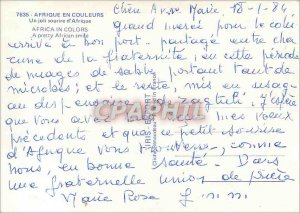 7635 - AFRIQUE EN COULEURS
Un joli sourire d'Afrique
AFRICA IN COLORS
A pretty African smile
Chère Anne Marie 18-1-84
grand merci pour le colis
arrivé en bon port partagé entre cha
cune de la fraternité, en cette période
de nuages de sable portant tant de
microbes; et le reste mis en usage
au dispensaire
précédente et que ce petit sourire
d'Afrique vous trouvera, comme
nous, en bonne santé. Dans
une fraternelle union de prière
Marie Rosa